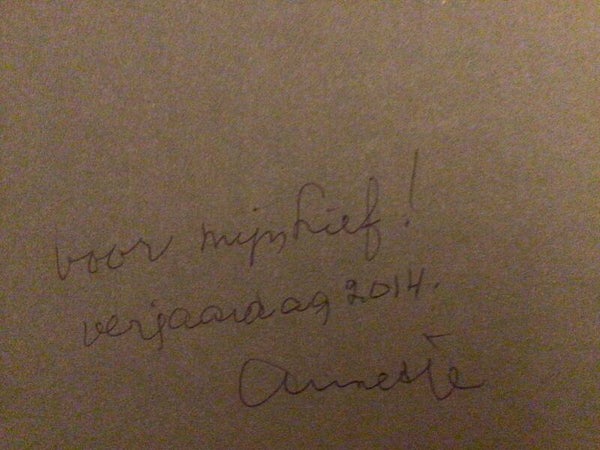 voor mijn Lief!
verjaardag 2014.
Annette